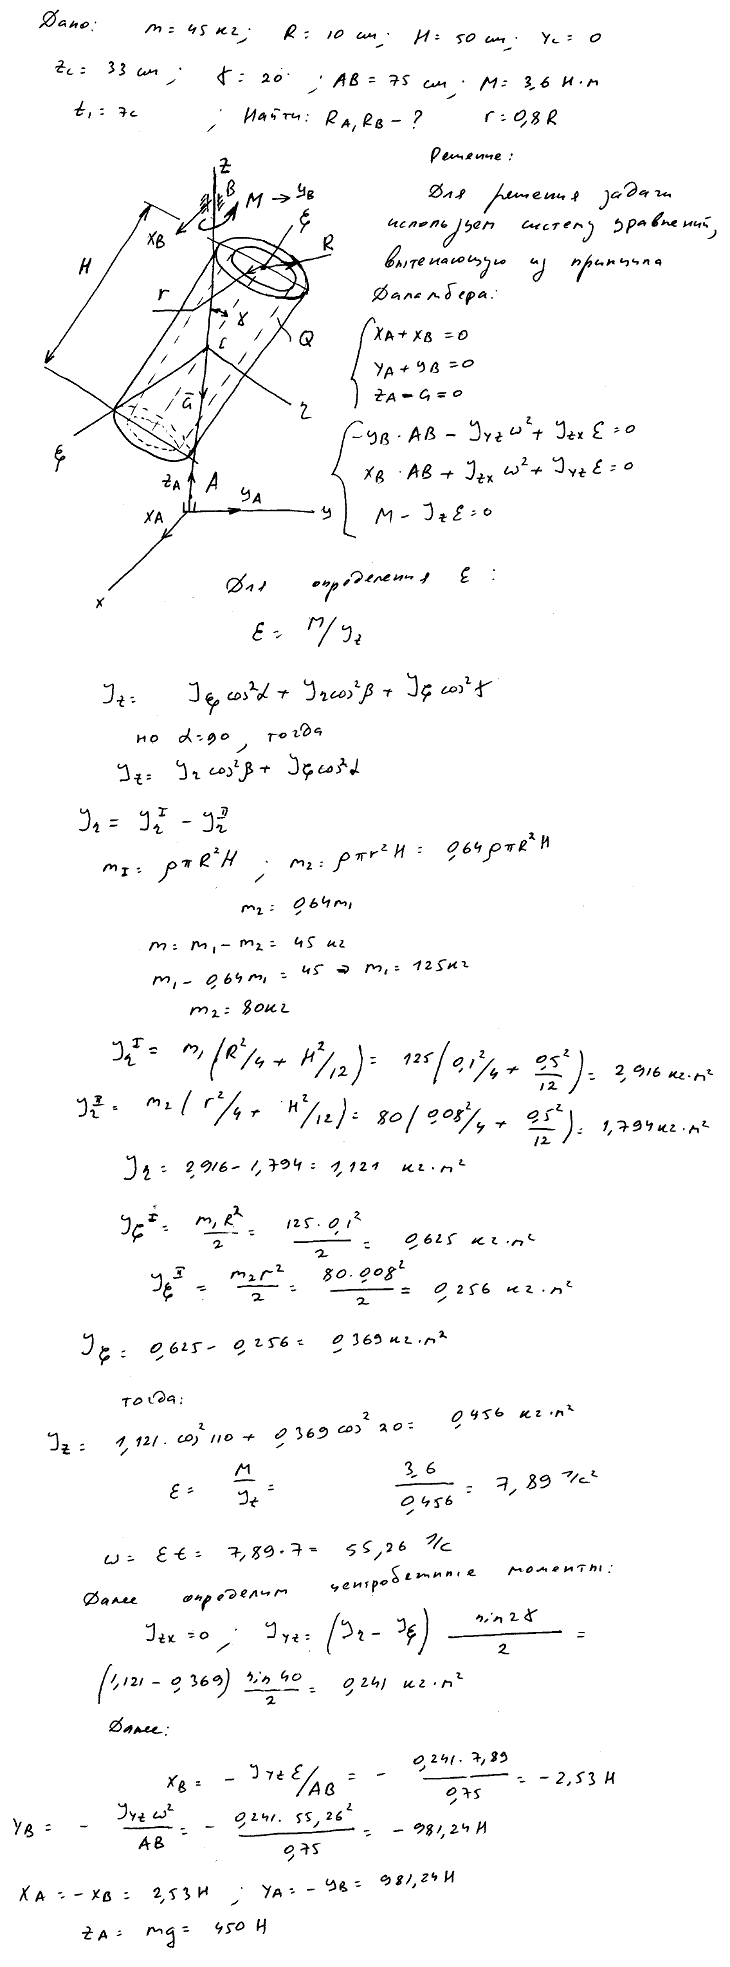 Дано: m = 45 кг; R = 10 см; H = 50 см; Yc = 0
Zc = 33 см; γ = 20°; AB = 75 см; M = 3,6 Н·м
t₁ = 7c ; Найти: RA, RB - ? r = 0,8R
Решение:
Для решения задачи
используем систему уравнений,
вытекающую из принципа
Даламбера:
XA + XB = 0
YA + YB = 0
ZA - G = 0
-YB · AB - Jyz ω² + Jzx ε = 0
XB · AB + Jzx ω² + Jyz ε = 0
M - Jz ε = 0
z
B
M → yB
ξ
xB
R
H
r
γ
Q
c
G
η
ξ
zA
A
yA
y
xA
x
Для определения ε:
ε = M/Jz
Jz = Jξ cos²α + Jη cos²β + Jζ cos²γ
но α = 90, тогда
Jz = Jη cos²β + Jζ cos²α
Jη = Jη^I - Jη^II
m_I = ρπR²H ; m₂ = ρπr²H = 0,64ρπR²H
m₂ = 0,64m₁
m = m₁ - m₂ = 45 кг
m₁ - 0,64m₁ = 45 ⇒ m₁ = 125кг
m₂ = 80кг
Jη^I = m₁(R²/4 + H²/12) = 125(0,1²/4 + 0,5²/12) = 2,916 кг·м²
Jη^II = m₂(r²/4 + H²/12) = 80(0,08²/4 + 0,5²/12) = 1,794 кг·м²
Jη = 2,916 - 1,794 = 1,121 кг·м²
Jζ^I = m₁R²/2 = 125·0,1²/2 = 0,625 кг·м²
Jξ^II = m₂r²/2 = 80·0,08²/2 = 0,256 кг·м²
Jξ = 0,625 - 0,256 = 0,369 кг·м²
тогда:
Jz = 1,121·cos²110 + 0,369 cos²20 = 0,456 кг·м²
ε = M/Jz = 3,6/0,456 = 7,89 1/c²
ω = εt = 7,89·7 = 55,26 1/c
Далее определим центробежные моменты:
Jzx = 0 ; Jyz = (Jη - Jζ) sin2γ/2 =
(1,121 - 0,369) sin40/2 = 0,241 кг·м²
Далее:
XB = - Jyz ε/AB = - 0,241·7,89/0,75 = -2,53 Н
YB = - Jyz ω²/AB = - 0,241·55,26²/0,75 = -981,24 Н
XA = -XB = 2,53 Н ; YA = -YB = 981,24 Н
ZA = mg = 450 Н